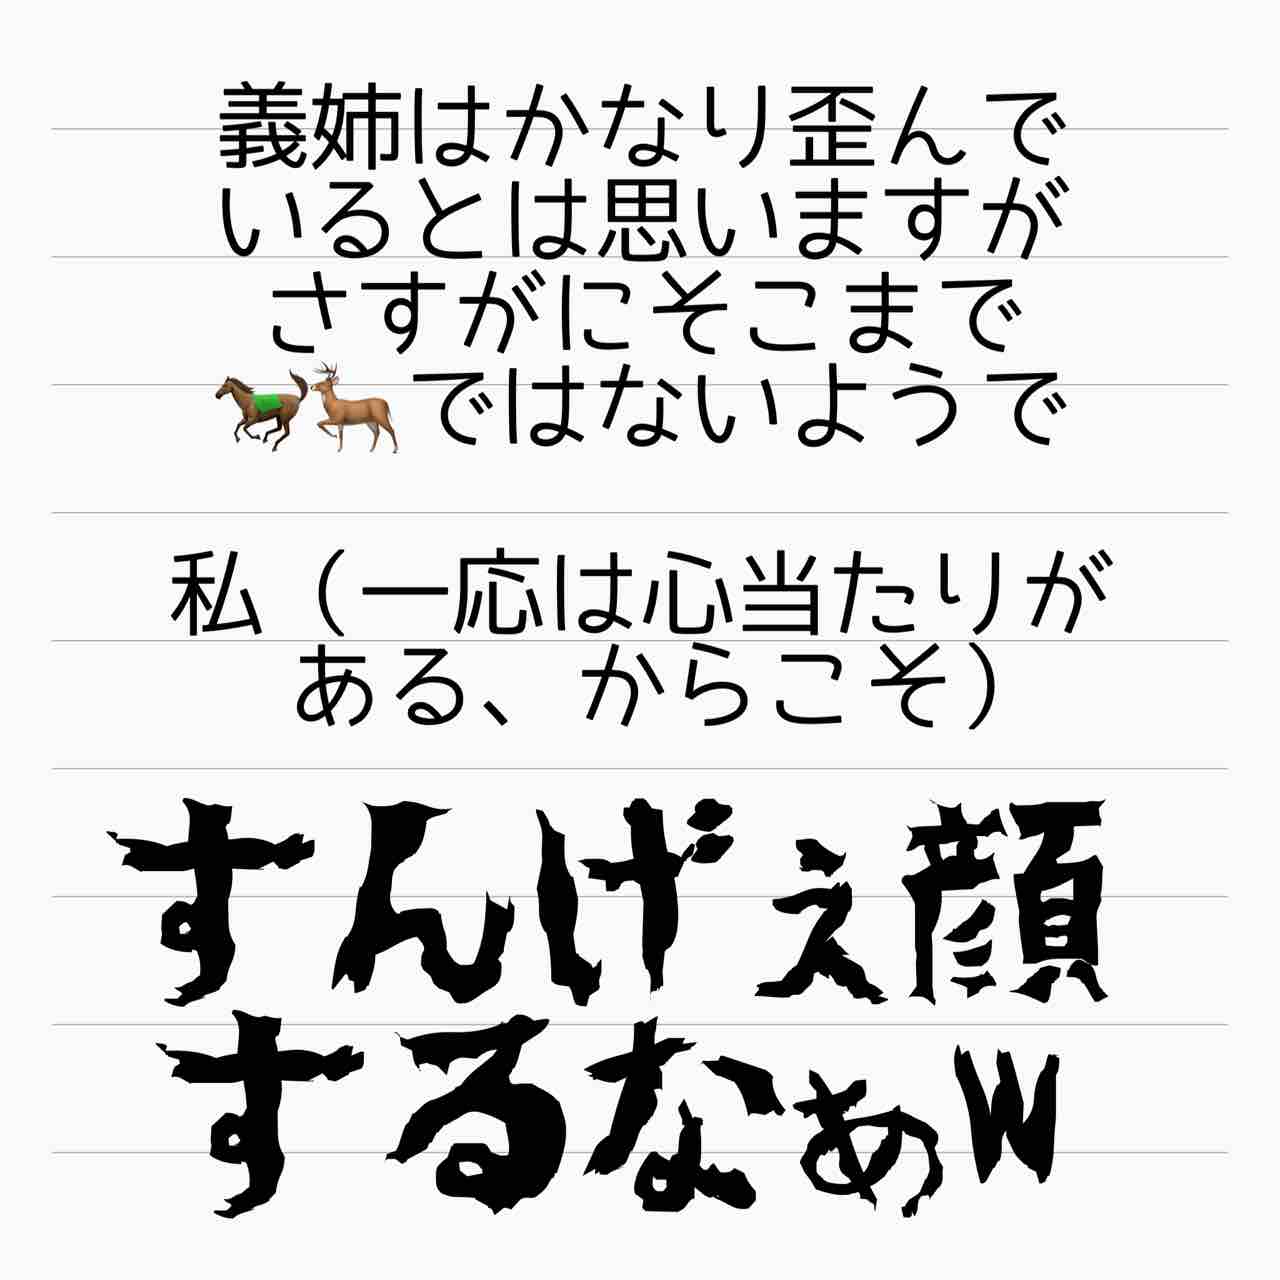 義姉はかなり歪んで
いるとは思いますが
さすがにそこまで
🐎🦌ではないようで
私（一応は心当たりが
ある、からこそ）
すんげぇ顔
するなぁw